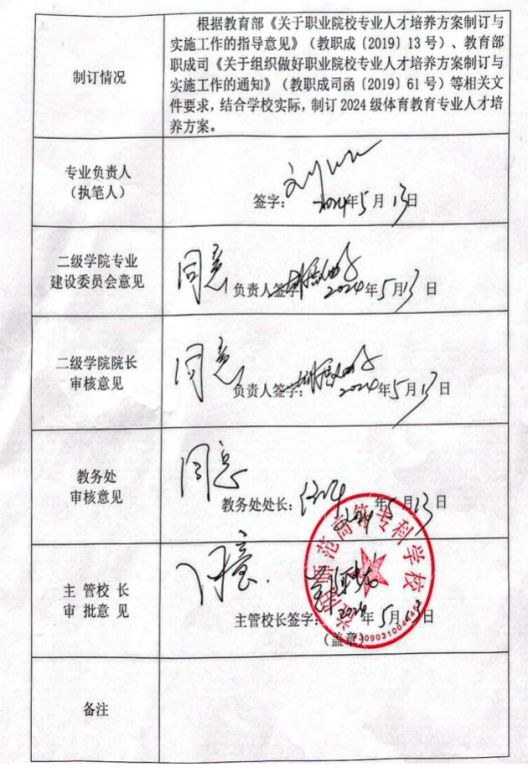 制订情况
根据教育部《关于职业院校专业人才培养方案制订与
实施工作的指导意见》（教职成〔2019〕13号）、教育部
职成司《关于组织做好职业院校专业人才培养方案制订与
实施工作的通知》（教职成司函〔2019〕61号）等相关文
件要求，结合学校实际，制订2024级体育教育专业人才培
养方案。
专业负责人
（执笔人）
签字：
2024年5月13日
二级学院专业
建设委员会意见
同意
负责人签字：
2024年5月13日
二级学院院长
审核意见
同意
负责人签字：
2024年5月13日
教务处
审核意见
同意
教务处处长：
2024年5月13日
主管校长
审批意见
同意.
主管校长签字：
2024年5月13日
（盖章）
范高等专科学校
备注